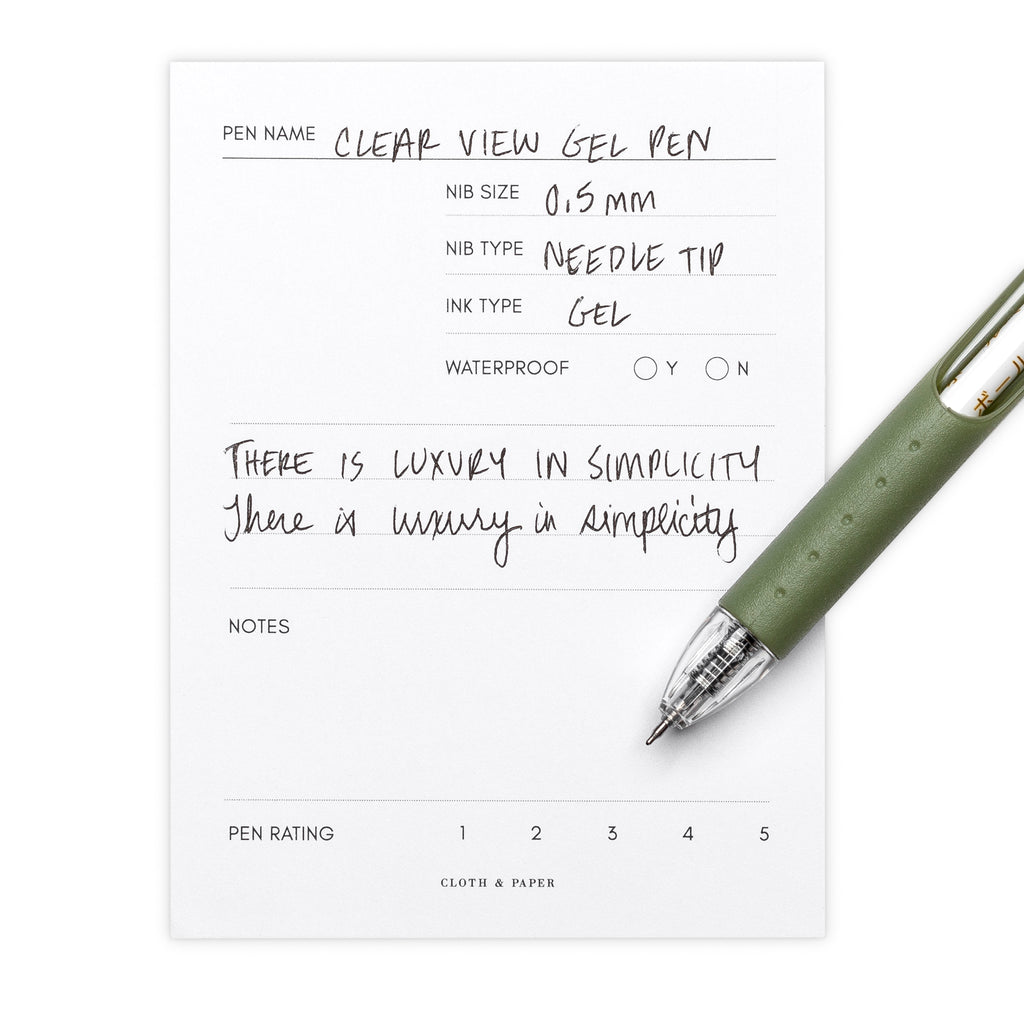 PEN NAME CLEAR VIEW GEL PEN
NIB SIZE 0.5 mm
NIB TYPE NEEDLE TIP
INK TYPE GEL
WATERPROOF Y N
THERE IS LUXURY IN SIMPLICITY
There is luxury in simplicity
NOTES
PEN RATING 1 2 3 4 5
CLOTH & PAPER
ボール